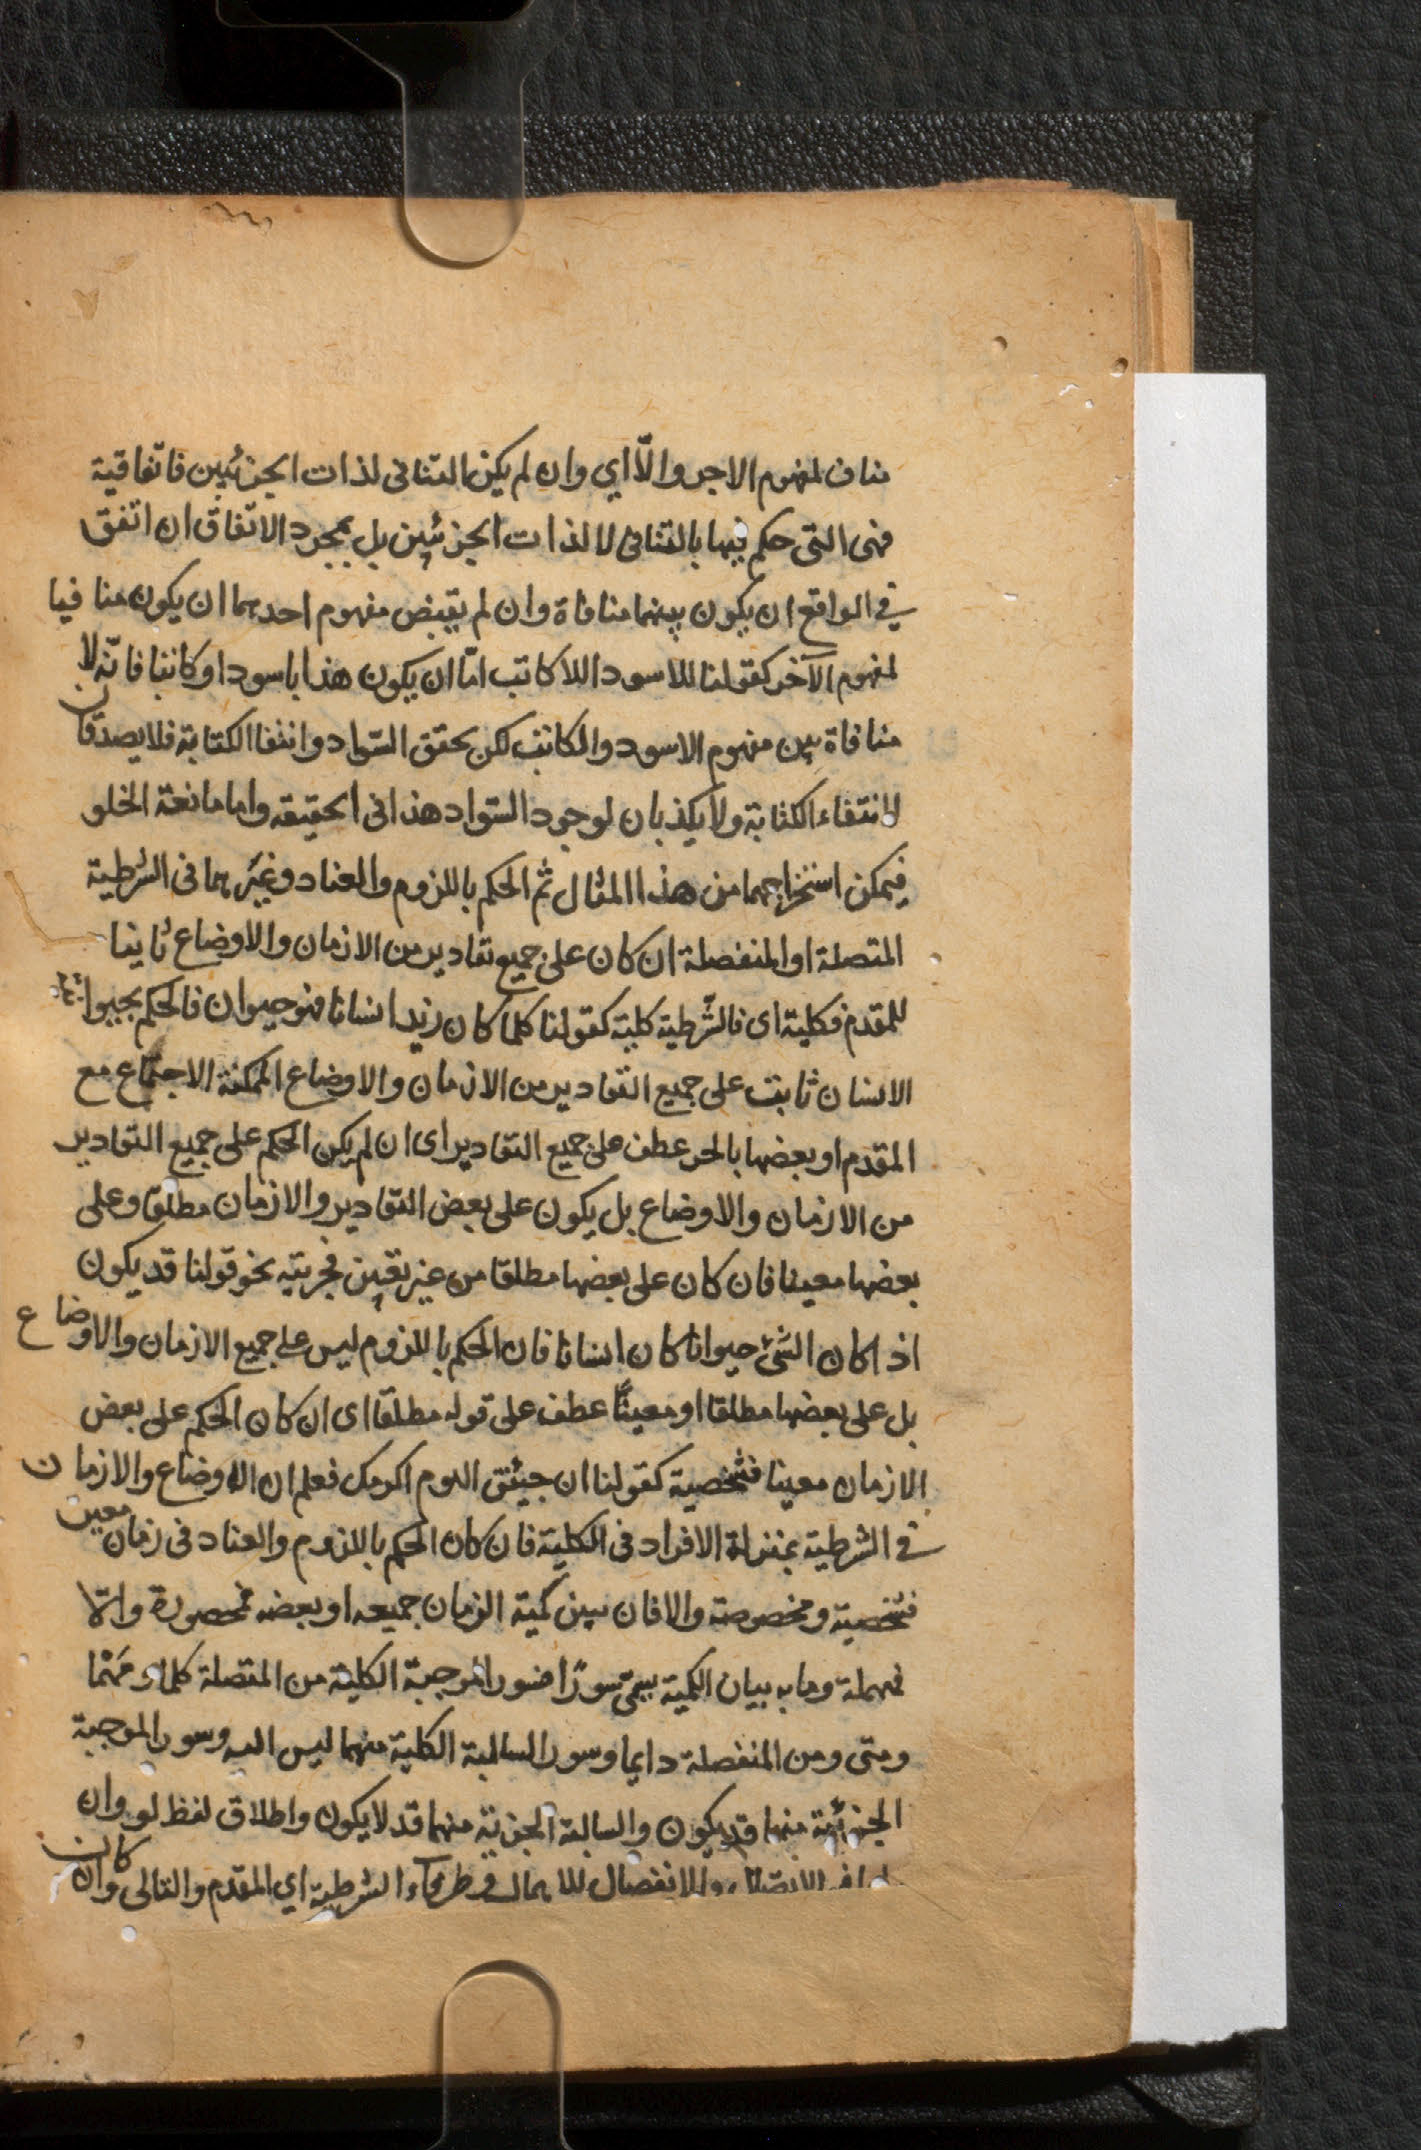 مناف لمفهوم الاخر والّا اي وان لم يكن التنافى لذات الجزئين فاتفاقية
فهى التى حكم فيها بالتنافى لا لذات الجزئين بل بمجرد الاتفاق ان اتفق
في الواقع ان يكون بينهما منافاة وان لم يقتض مفهوم احدهما ان يكون منافيا
لمفهوم الآخر كقولنا للاسود اللا كاتب امّا ان يكون هذا اسودا وكاتبا فانّه لا
منافاة بين مفهوم الاسود والكاتب لكن تحقق السّواد وانتفا الكتابة فلا يصدقان
لانتفاء الكتابة ولا يكذبان لوجود السّواد هذا فى الحقيقه واما مانعة الخلو
فيمكن استخراجهما من هذا المثال ثم الحكم باللزوم والعناد وغيرهما فى الشرطية
المتصلة او المنفصلة ان كان على جميع تقادير من الازمان والاوضاع ثابتا
للمقدم فكلية اى فالشّرطية كلية كقولنا كلما كان زيد انسانا فهو حيوان فالحكم بحيوانية
الانسان ثابت على جميع التقادير من الازمان والاوضاع الممكنة الاجتماع مع
المقدم او بعضها بالجر عطف على جميع التقادير اى ان لم يكن الحكم على جميع التقادير
من الازمان والاوضاع بل يكون على بعض التقادير والازمان مطلقا وعلى
بعضها معينا فان كان على بعضها مطلقا من غير تعين فجزئية نحو قولنا قد يكون
اذا كان الشئ حيوانا كان انسانا فان الحكم باللزوم ليس على جميع الازمان والاوضاع
بل على بعضها مطلقا او معينًا عطف على قوله مطلقا اى ان كان الحكم على بعض
الازمان معينا فشخصية كقولنا ان جئتنى اليوم اكرمك فعلم ان الاوضاع والازمان
في الشرطية بمنزلة الافراد فى الكلية فان كان الحكم باللزوم والعناد فى زمان معين
فشخصية ومخصوصة والا فان بين كمية الزمان جميعه او بعضه فمحصورة والّا
فمهملة وما به بيان الكمية يسمّى سورًا فسور الموجبة الكلية من المتصلة كلما ومهما
ومتى ومن المنفصلة دايما وسور السالبة الكلية منهما ليس البته وسور الموجبة
الجزئية منهما قد يكون والسالبة الجزئية منهما قد لا يكون واطلاق لفظ لو وان
الاتصال والانفصال للاهمال وطرفاء الشرطية اي المقدّم والتالى وان كان